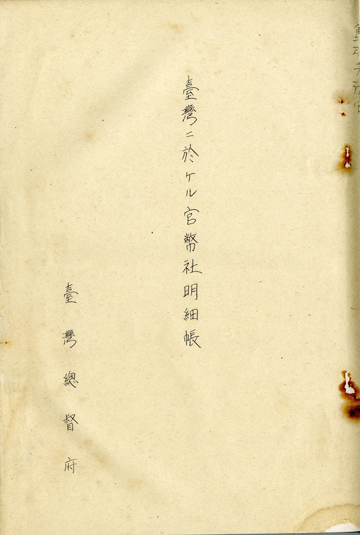 臺灣ニ於ケル官幣社明細帳
臺灣總督府